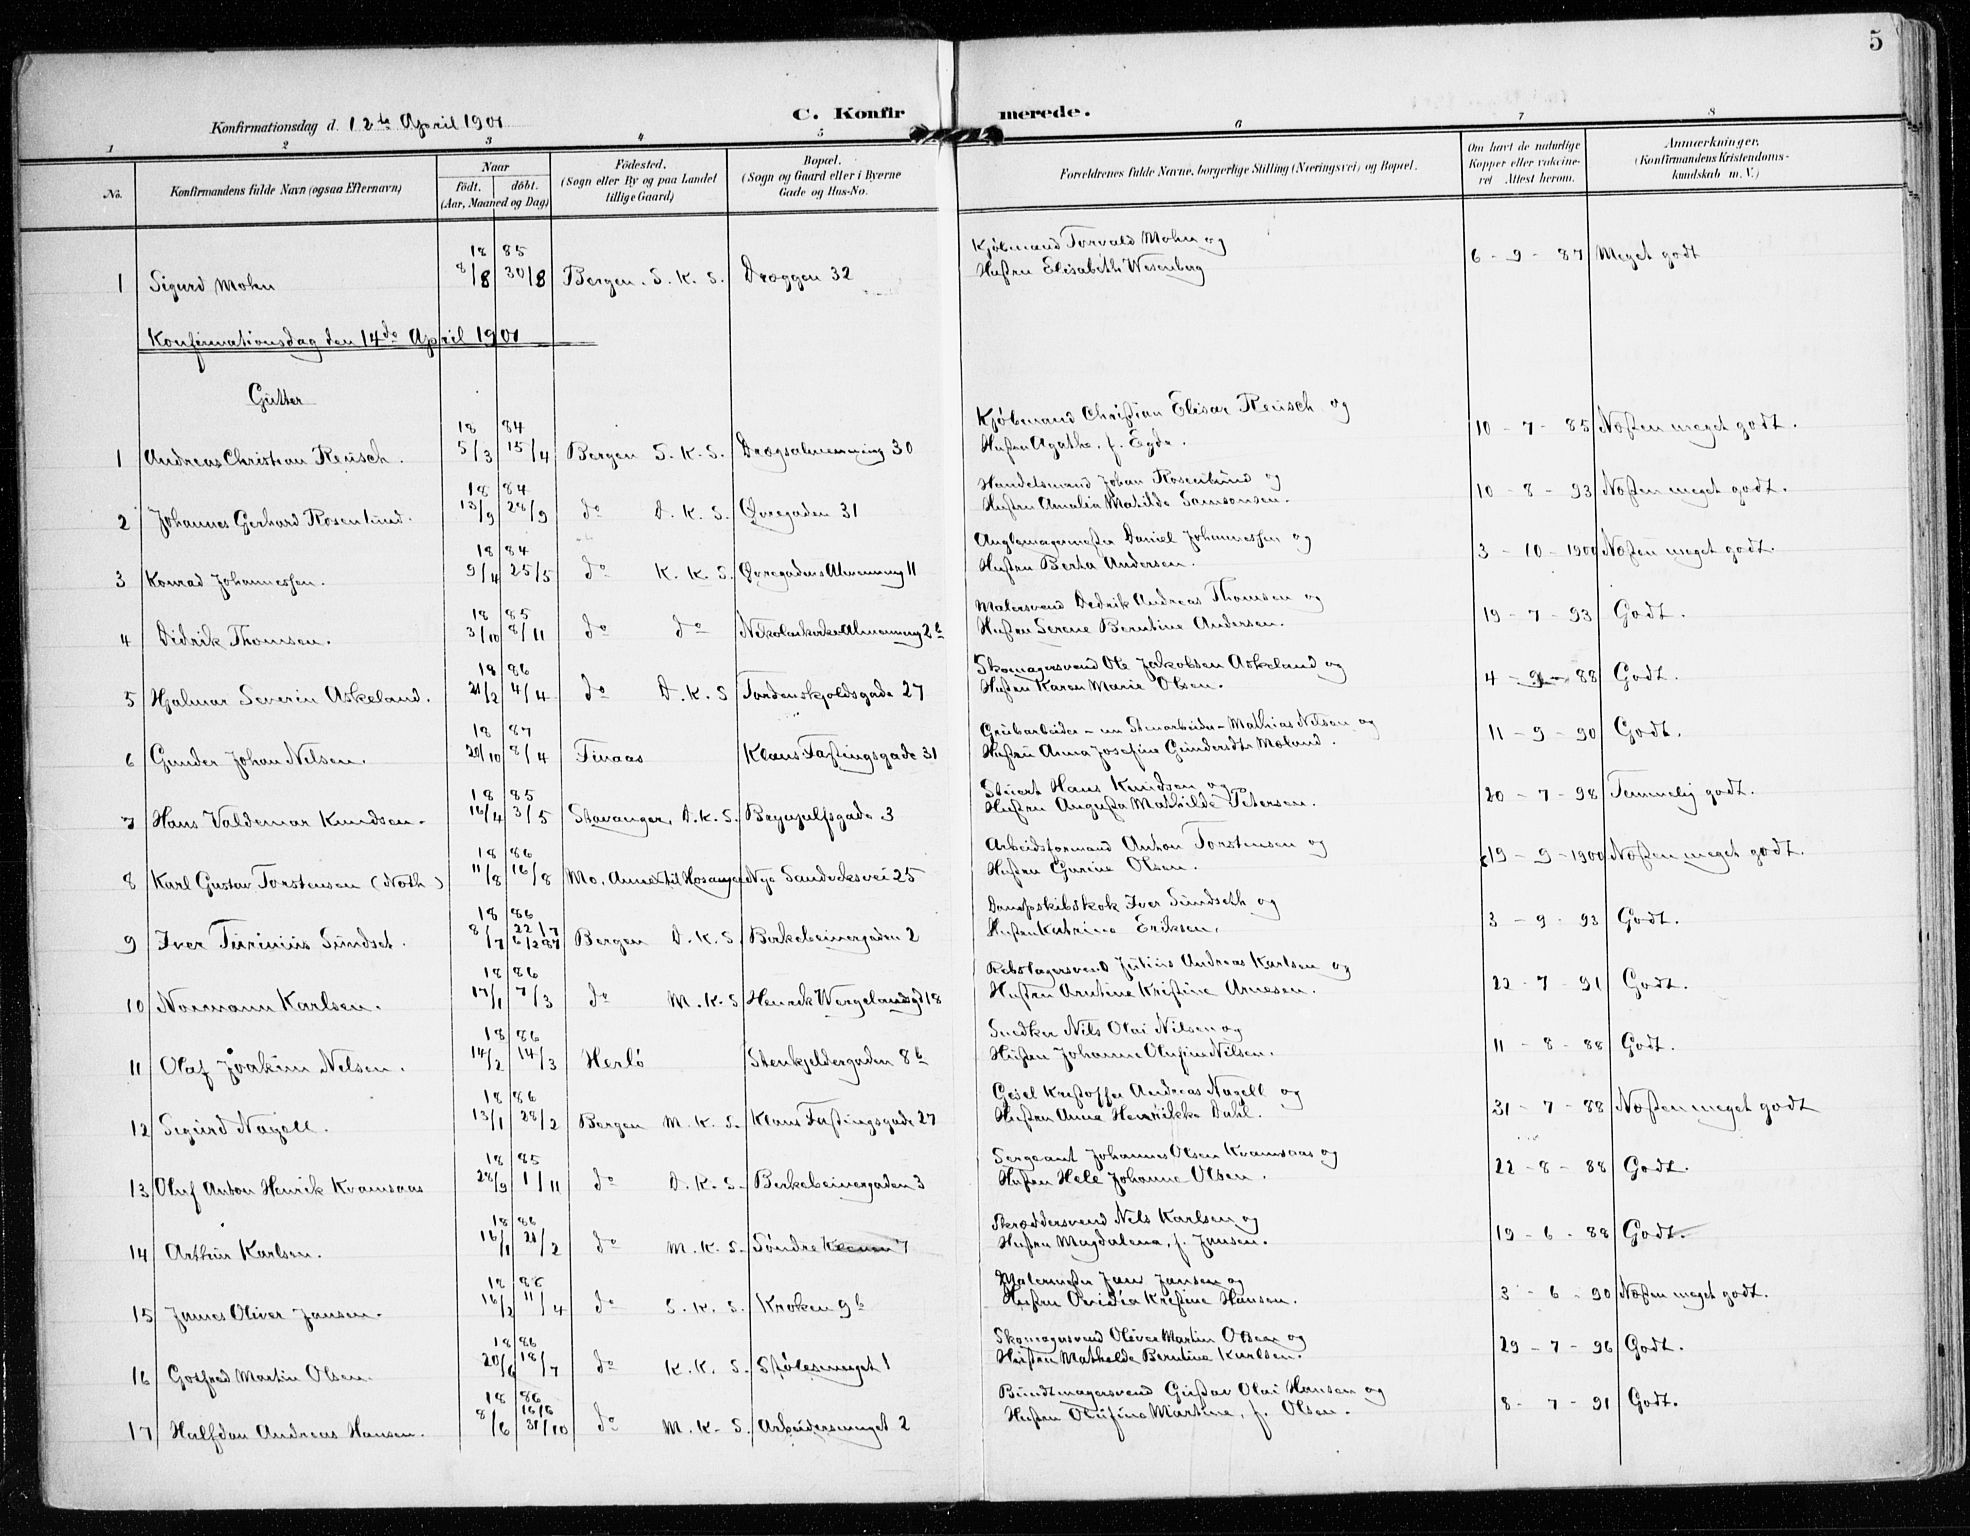 5
Konfirmationsdag d. 12te April 1901
C. Konfirmerede.
1 2 3 4 5 6 7 8
No.
Konfirmandens fulde Navn (ogsaa Efternavn)
Naar
født. døbt.
(Aar, Maaned og Dag)
Fødested.
(Sogn eller By og paa Landet
tillige Gaard)
Bopæl.
(Sogn og Gaard eller i Byerne
Gade og Hus-No.
Forældrenes fulde Navne, borgerlige Stilling (Næringsvei) og Bopæl.
Om havt de naturlige
Kopper eller vakcine-
ret Attest herom.
Anmærkninger.
(Konfirmandens Kristendoms-
kundskab m. V.)
18 85 Kjøbmand Torvald Mohn og
1 Sigurd Mohn 8/8 30/8 Bergen. S. K. S. Dræggen 32 Hustru Elisabeth Wesenberg 6-9-87 Meget godt
Konfirmationsdag den 14de April 1901
Gutter
18 84 Kjøbmand Christian Elisar Reusch og
1 Andreas Christian Reusch. 5/3 15/4 Bergen S. K. S. Drægsalmenning 30 Hustru Agathe, f. Egde. 10-7-85 Næsten meget godt.
18 84 Handelsmand Johan Rosenlund og
2 Johannes Gerhard Rosenlund. 13/9 28/9 do D. K. S. Øvregaden 31 Hustru Amalia Matilde Samsonsen. 10-8-93 Næsten meget godt.
18 84 Daniel Johannessen og
3 Konrad Johannessen. 9/4 25/5 do K. K. S. Øvregadens Almenning 11 Hustru Berta Andersen. 3-10-1900 Næsten meget godt.
18 85 Malersvend Didrik Andreas Thomsen og
4 Didrik Thomsen. 3/10 8/11 do do Nikolaikirke Almenning 2b Hustru Serene Berntine Andersen. 19-7-93 Godt.
18 86 Skomagersvend Ole Jakobsen Askeland og
5 Hjalmar Severin Askeland. 21/2 4/4 do D. K. S Tordenskjoldsgade 27 Hustru Karen Marie Olsen. 4-9-88 Godt.
18 87 Grubarbeider - nu Stenarbeider - Mathias Nilsen og
6 Gunder Johan Nilsen. 20/10 8/4 Finaas Klaus Fastingsgade 31 Hustru Anna Josefine Gundersdtr Moland. 11-9-90 Godt.
18 85 Stuert Hans Knudsen og
7 Hans Valdemar Knudsen. 16/4 3/5 Stavanger, D. K. S. Brynjulfsgade 3 Hustru Augusta Mathilde Petersen. 20-7-98 Temmelig godt.
18 86 Arbeidsformand Anton Torstensen og
8 Karl Gustav Torstensen (Noth) 11/8 16/8 Mo, Annex til Hosanger Nye Sandviksvei 25 Hustru Gurine Olsen. 19-9-1900 Næsten meget godt.
18 86 Dampskibskok Iver Sundseth og
9 Iver Turinius Sundset. 8/7 22/7 6/2 87 Bergen D. K. S. Birkebeinergaden 2 Hustru Katrine Eriksen. 3-9-93 Godt.
18 86 Rebslagersvend Julius Andreas Karlsen og
10 Normann Karlsen. 17/1 7/3 do M. K. S Henrik Wergelandsgd 18 Hustru Arntine Kristine Arnesen. 22-7-91 Godt.
18 86 Snedker Nils Olai Nilsen og
11 Olaf Joakim Nilsen. 14/2 14/3 Herlø Stenkjeldergaden 8b Hustru Johanne Olufine Nilsen. 11-8-88 Godt.
18 86 Gjesel Kristoffer Andreas Nagell og
12 Sigurd Nagell. 13/1 28/2 Bergen M. K. S. Klaus Fastingsgade 27 Hustru Anna Henrikke Dahl. 31-7-88 Næsten meget godt
18 85 Sergeant Johannes Olsen Kvamsaas og
13 Oluf Anton Henrik Kvamsaas 28/9 1/11 do D. K. S. Birkebeinergaden 3 Hustru Hele Johanne Olsen. 22-8-88 Godt.
18 86 Skræddersvend Nils Karlsen og
14 Arthur Karlsen. 16/1 21/2 do M. K. S. Søndre 7 Hustru Magdalena, f. Jansen. 19-6-88 Godt.
18 86 Malermester Jan Jansen og
15 James Oliver Jansen. 16/2 11/4 do S. K. S. Kroken 9b Hustru Ovidia Kristine Hansen. 3-6-90 Næsten meget godt.
18 86 Skomagersvend Oliver Martin Olsen og
16 Gotfred Martin Olsen. 20/6 18/7 do K. K. S. Stølesmuget 1 Hustru Mathilde Berntine Karlsen. 29-7-96 Godt.
18 86 Bundtmagersvend Gustav Olai Hansen og
17 Halfdan Andreas Hansen. 8/6 16/6 31/10 do M. K. S. Arbeidersmuget 2 Hustru Olufine Martine, f. Olsen. 8-7-91 Godt.